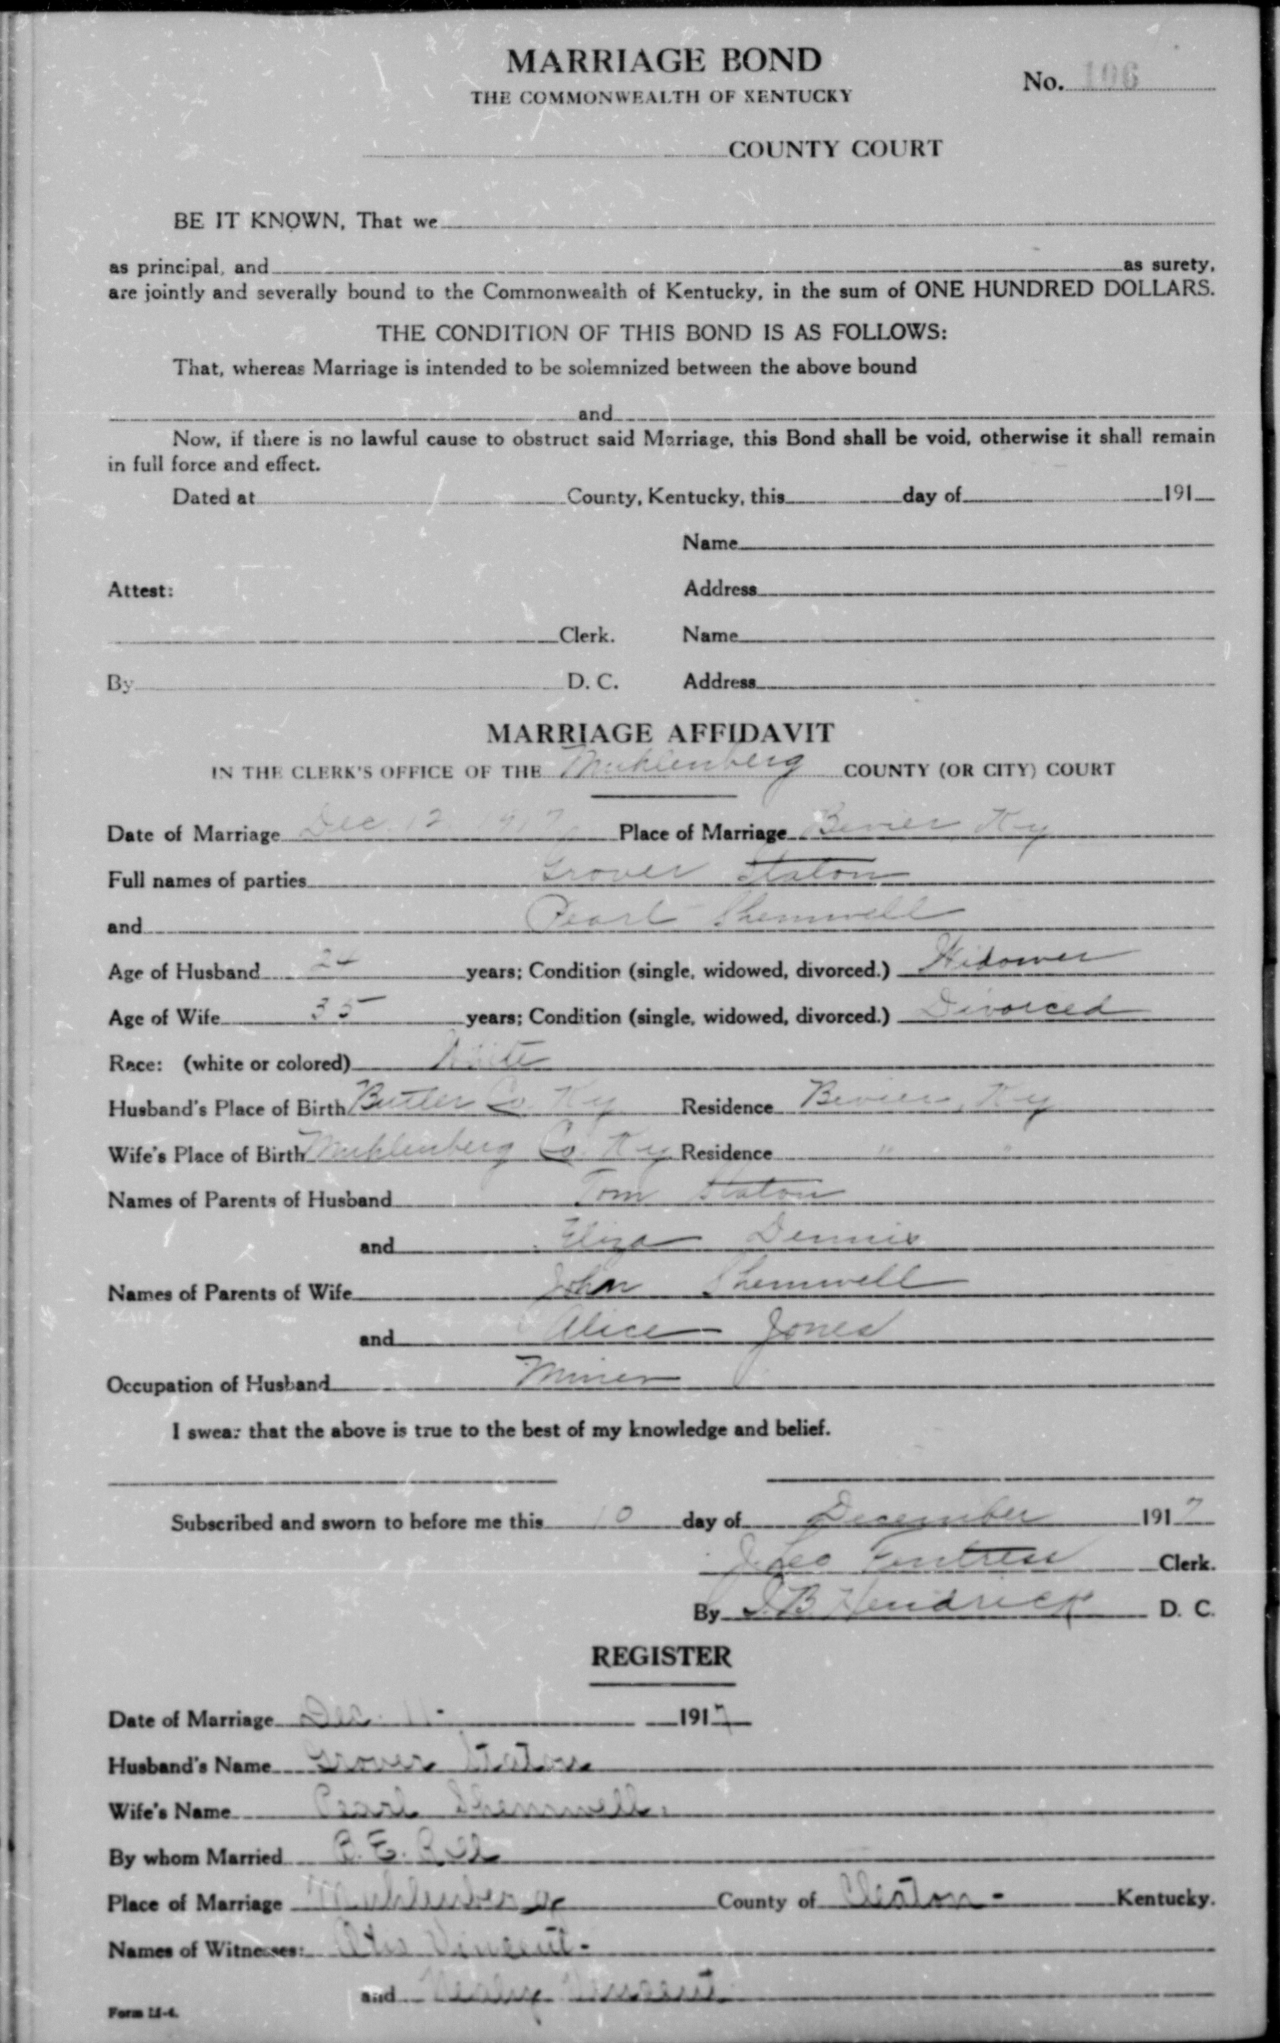 MARRIAGE BOND
THE COMMONWEALTH OF KENTUCKY
No. 106
COUNTY COURT
BE IT KNOWN, That we
as principal, and as surety,
are jointly and severally bound to the Commonwealth of Kentucky, in the sum of ONE HUNDRED DOLLARS.
THE CONDITION OF THIS BOND IS AS FOLLOWS:
That, whereas Marriage is intended to be solemnized between the above bound
and
Now, if there is no lawful cause to obstruct said Marriage, this Bond shall be void, otherwise it shall remain
in full force and effect.
Dated at County, Kentucky, this day of 191
Name
Attest: Address
Clerk. Name
By D. C. Address
MARRIAGE AFFIDAVIT
IN THE CLERK'S OFFICE OF THE Muhlenberg COUNTY (OR CITY) COURT
Date of Marriage Dec. 12 1917 Place of Marriage Bevier, Ky
Full names of parties Grover Staton
and Pearl Shemwell
Age of Husband years; Condition (single, widowed, divorced.) Widower
Age of Wife 35 years; Condition (single, widowed, divorced.) Divorced
Race: (white or colored) White
Husband's Place of Birth Butler Co. Ky Residence Bevier, Ky
Wife's Place of Birth Muhlenberg Co. Ky Residence " "
Names of Parents of Husband Tom Staton
and Eliza Dennis
Names of Parents of Wife John Shemwell
and Alice Jones
Occupation of Husband Miner
I swear that the above is true to the best of my knowledge and belief.
Subscribed and sworn to before me this 10 day of December 1917
J. Leo Fentress Clerk.
By J. B. Hendrick D. C.
REGISTER
Date of Marriage Dec. 11 - 1917
Husband's Name Grover Staton
Wife's Name Pearl Shemwell.
By whom Married B. E.
Place of Marriage Muhlenberg County of Cleaton - Kentucky.
Names of Witnesses: Vincent -
and Vincent
Form 11-4.